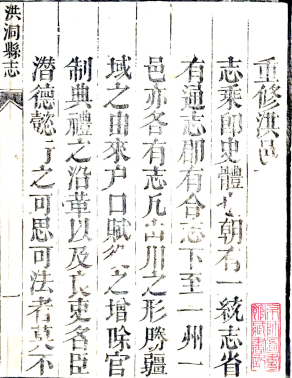 重修洪邑
志乘即史體也朝有一統志省
有通志郡有合志下至一州一
邑亦各有志凡山川之形勝疆
域之由來戶口賦之增除官
制典禮之沿革以及良吏名臣
潛德懿行之可思可法者莫不
洪洞縣志
一